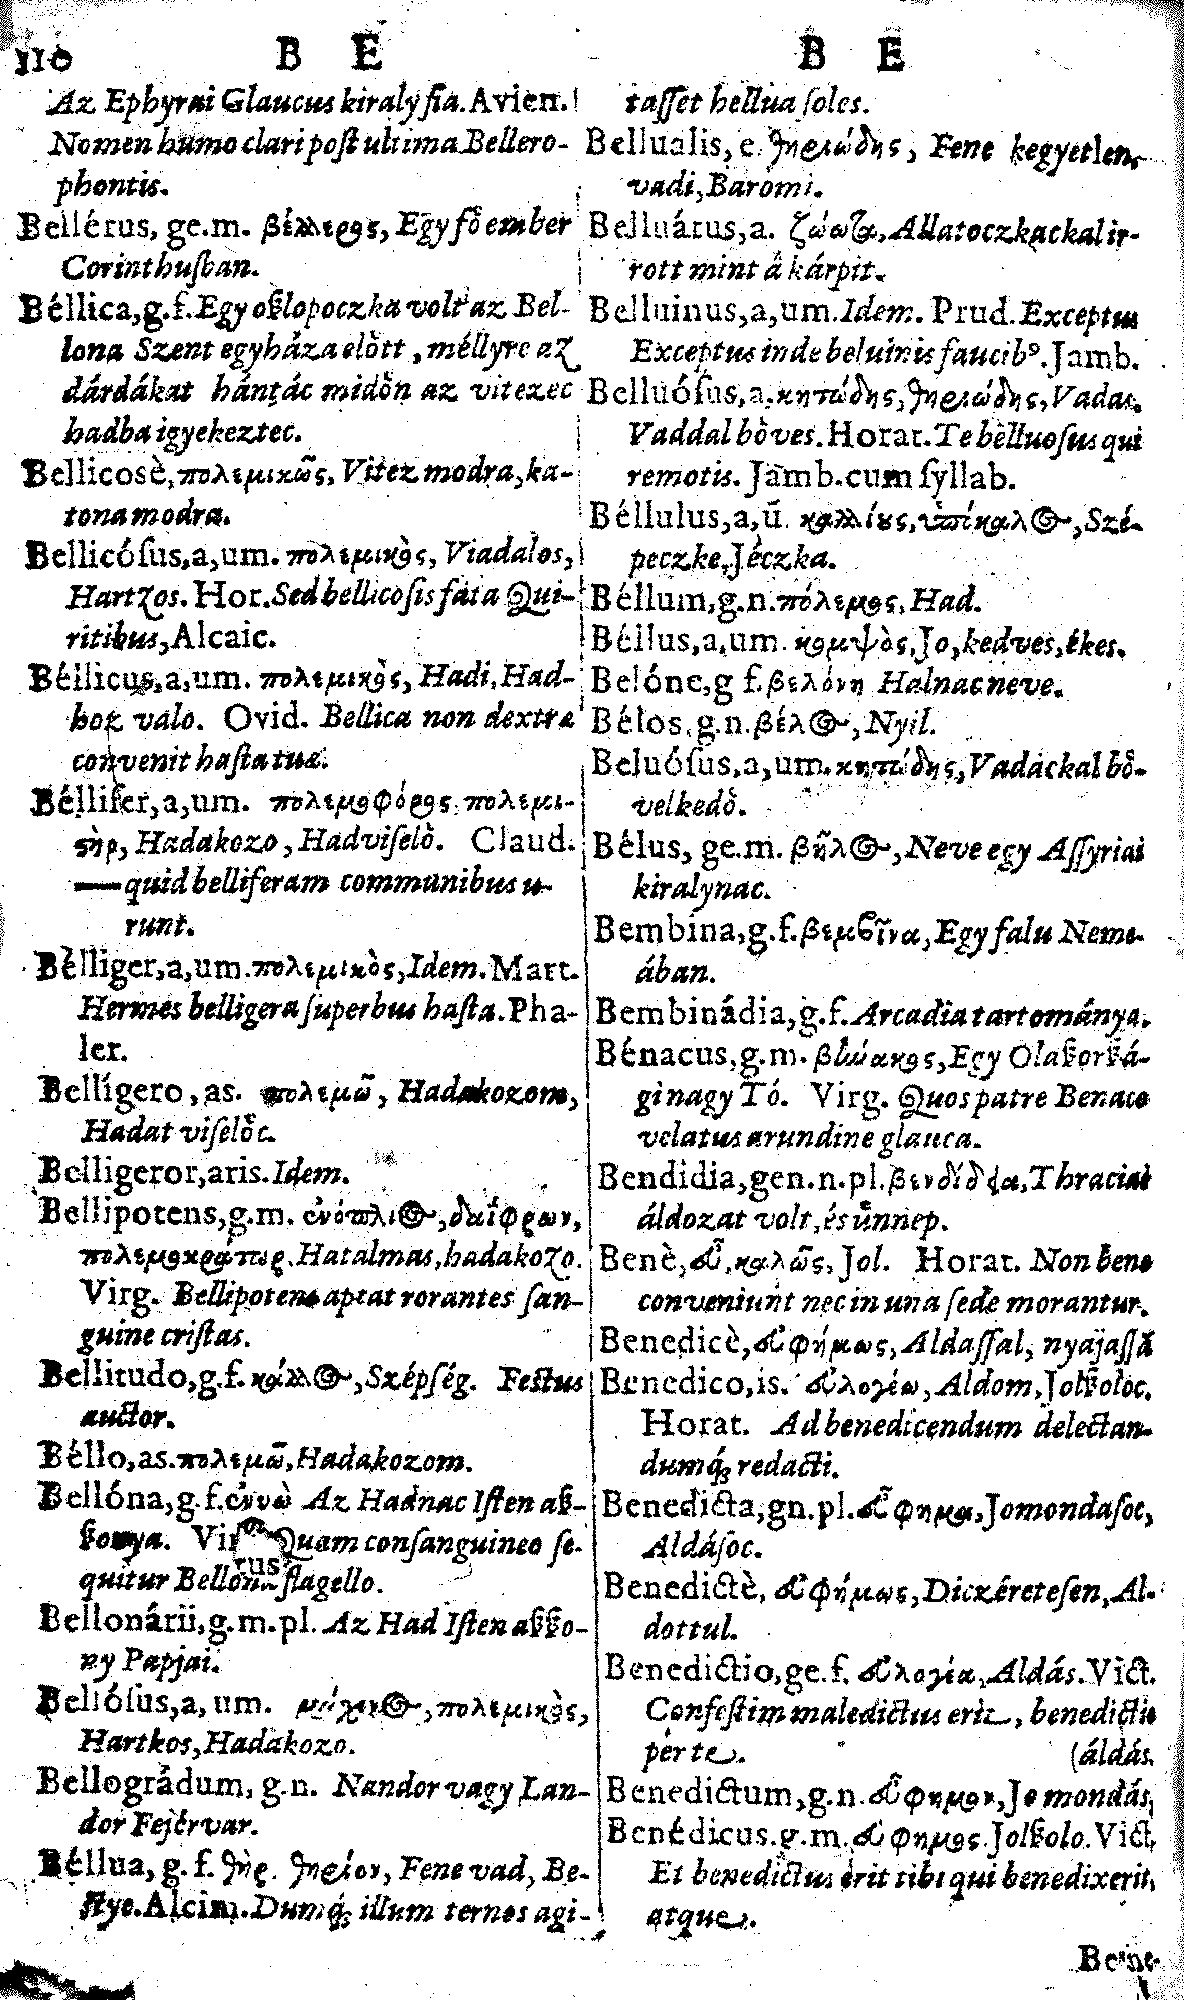 110 B E
Az Ephyrai Glaucus kiraly fia. Avien.
Nomen humo clari post ultima Bellero-
phontis.
Bellérus, ge.m. βέλλερος, Egy fő ember
Corinthusban.
Béllica, g.f. Egy oßlopoczka volt az Bel-
lona Szent egyháza elòtt, méllyre az
dárdákat hántác midőn az vitezec
hadba igyekeztec.
Bellicosè, πολεμικῶς, Vitez modra, ka-
tona modra.
Bellicósus, a, um. πολεμικὸς, Viadalos,
Hartzos. Hor. Sed bellicosis fata Qui-
ritibus, Alcaic.
Béllicus, a, um. πολεμικὸς, Hadi, Had-
hoz valo. Ovid. Bellica non dextra
convenit hasta tuæ.
Béllifer, a, um. πολεμοφόρος, πολεμι-
ςὴρ, Hadakozo, Hadviselò. Claud.
— quid belliferam communibus u-
runt.
Bèlliger, a, um. πολεμικὸς, Idem. Mart.
Hermes belligera superbus hasta. Pha-
ler.
Belligero, as. πολεμῶ, Hadakozom,
Hadat viselőc.
Belligeror, aris. Idem.
Bellipotens, g.m. ἐνόπλιος, δαΐφρων,
πολεμοκράτωρ. Hatalmas, hadakozo.
Virg. Bellipotens aptat rorantes san-
guine cristas.
Bellitudo, g.f. κάλλος, Szépség. Festus
auctor.
Béllo, as. πολεμῶ, Hadakozom.
Bellóna, g.f. ἐνυὼ Az Hadnac Isten aß-
ßonya. Quam consanguineo se-
quitur flagello.
Bellonárii, g.m.pl. Az Had Isten aßßo-
ny Papjai.
Bellósus, a, um. πολεμικὸς,
Hartkos, Hadakozo.
Bellográdum, g.n. Nandor vagy Lan-
dor Fejèrvar.
Béllua, g.f. θὴρ, θηρίον, Fene vad, Be-
stye. Alcim. Dumq́ illum ternos agi-
B E
tasset bellua soles.
Bellualis, e. θηριώδης, Fene kegyetlen,
vadi, Baromi.
Belluátus, a. ζώωτα, Allatoczkackal ir-
rott mint á kárpit.
Belluinus, a, um. Idem. Prud. Exceptus
Exceptus inde beluinis faucib9. Jamb.
Belluósus, a. κητώδης, θηριώδης, Vadas.
Vaddal bòves. Horat. Te bèlluosus qui
remotis. Jamb. cum syllab.
Béllulus, a, ũ. Szé-
peczke, Jéczka.
Béllum, g.n. πόλεμος, Had.
Béllus, a, um. κομψὸς, Jo, kedves, ékes.
Belóne, g f. βελόνη Halnac neve.
Bélos, g.n. βέλος, Nyil.
Beluósus, a, um. κητώδης, Vadackal bő-
velkedò.
Bélus, ge.m. βῆλος, Neve egy Assyriai
kiralynac.
Bembina, g.f. βεμβῖνα, Egy falu Neme-
ában.
Bembinádia, g.f. Arcadia tartománya.
Bénacus, g.m. βήνακος, Egy Olaßorßá-
gi nagy Tó. Virg. Quos patre Benaco
velatus arundine glauca.
Bendidia, gen.n.pl. βενδίδεια, Thraciai
áldozat volt, és ũnnep.
Benè, εὖ, καλῶς, Jol. Horat. Non bene
conveniunt nec in una sede morantur.
Benedicè, εὐφήμως, Aldassal, nyajassá
Benedico, is. εὐλογέω, Aldom, Jolßoloc.
Horat. Ad benedicendum delectan-
dumq́ redacti.
Benedicta, gn.pl. εὔφημα, Jomondasoc,
Aldásoc.
Benedictè, εὐφήμως, Diczéretesen, Al-
dottul.
Benedictio, ge.f. εὐλογία, Aldás. Vict.
Confestim maledictus erit, benedictus
per te. (áldás.
Benedictum, g.n. εὔφημον, Jo mondás,
Benédicus. g.m. εὔφημος. Jolßolo. Vict.
Et benedictus erit tibi qui benedixerit,
atque.
Bene-